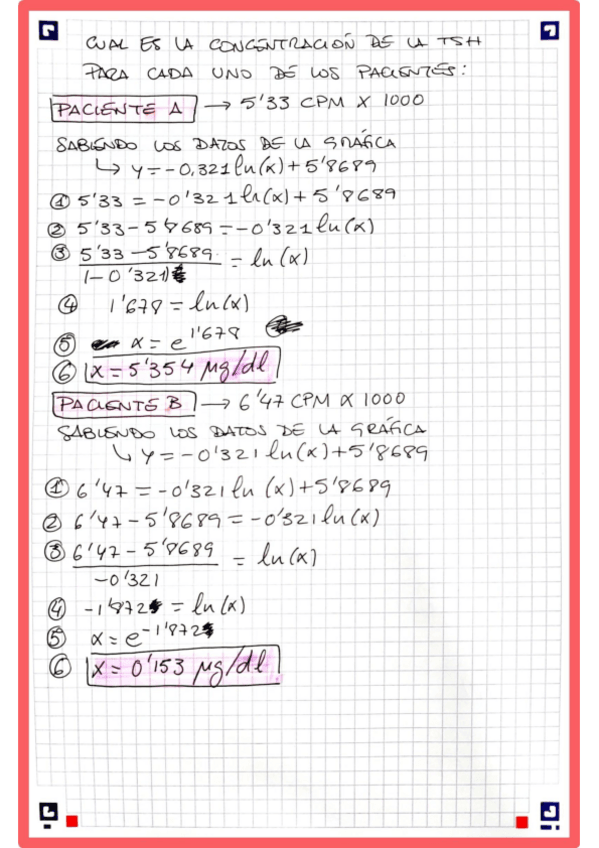 CUAL ES LA CONCENTRACIÓN DE LA TSH
PARA CADA UNO DE LOS PACIENTES:
PACIENTE A → 5'33 CPM X 1000
SABIENDO LOS DATOS DE LA GRÁFICA
↳ y = -0,321 ln(x) + 5'8689
① 5'33 = -0'321 ln(x) + 5'8689
② 5'33 - 5'8689 = -0'321 ln(x)
③ 5'33 - 5'8689 = ln(x)
(-0'321)
④ 1'678 = ln(x)
⑤ x = e^1'678
⑥ x = 5'354 μg/dl
PACIENTE B → 6'47 CPM X 1000
SABIENDO LOS DATOS DE LA GRÁFICA
↳ y = -0'321 ln(x) + 5'8689
① 6'47 = -0'321 ln (x) + 5'8689
② 6'47 - 5'8689 = -0'321 ln(x)
③ 6'47 - 5'8689 = ln(x)
-0'321
④ -1'872 = ln(x)
⑤ x = e^-1'872
⑥ x = 0'153 μg/dl